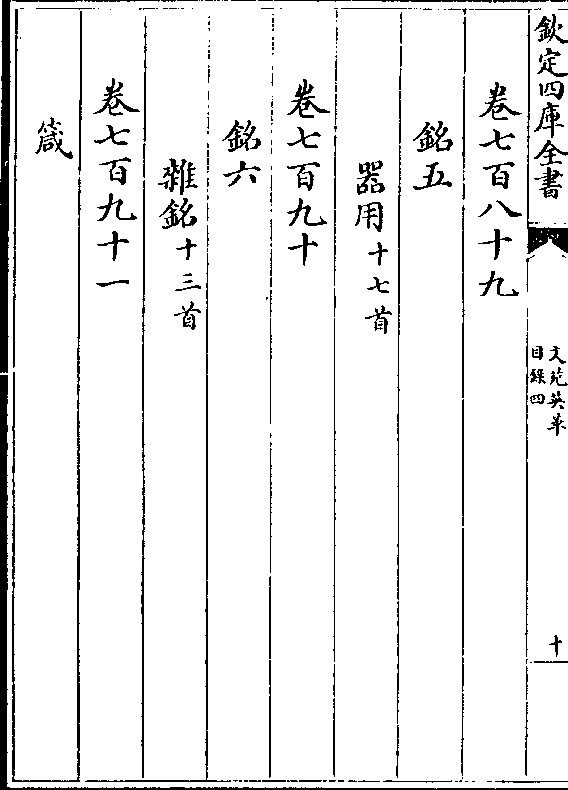 欽定四庫全書
文苑英華
目錄四
十
卷七百八十九
銘五
器用十七首
卷七百九十
銘六
雜銘十三首
卷七百九十一
箴